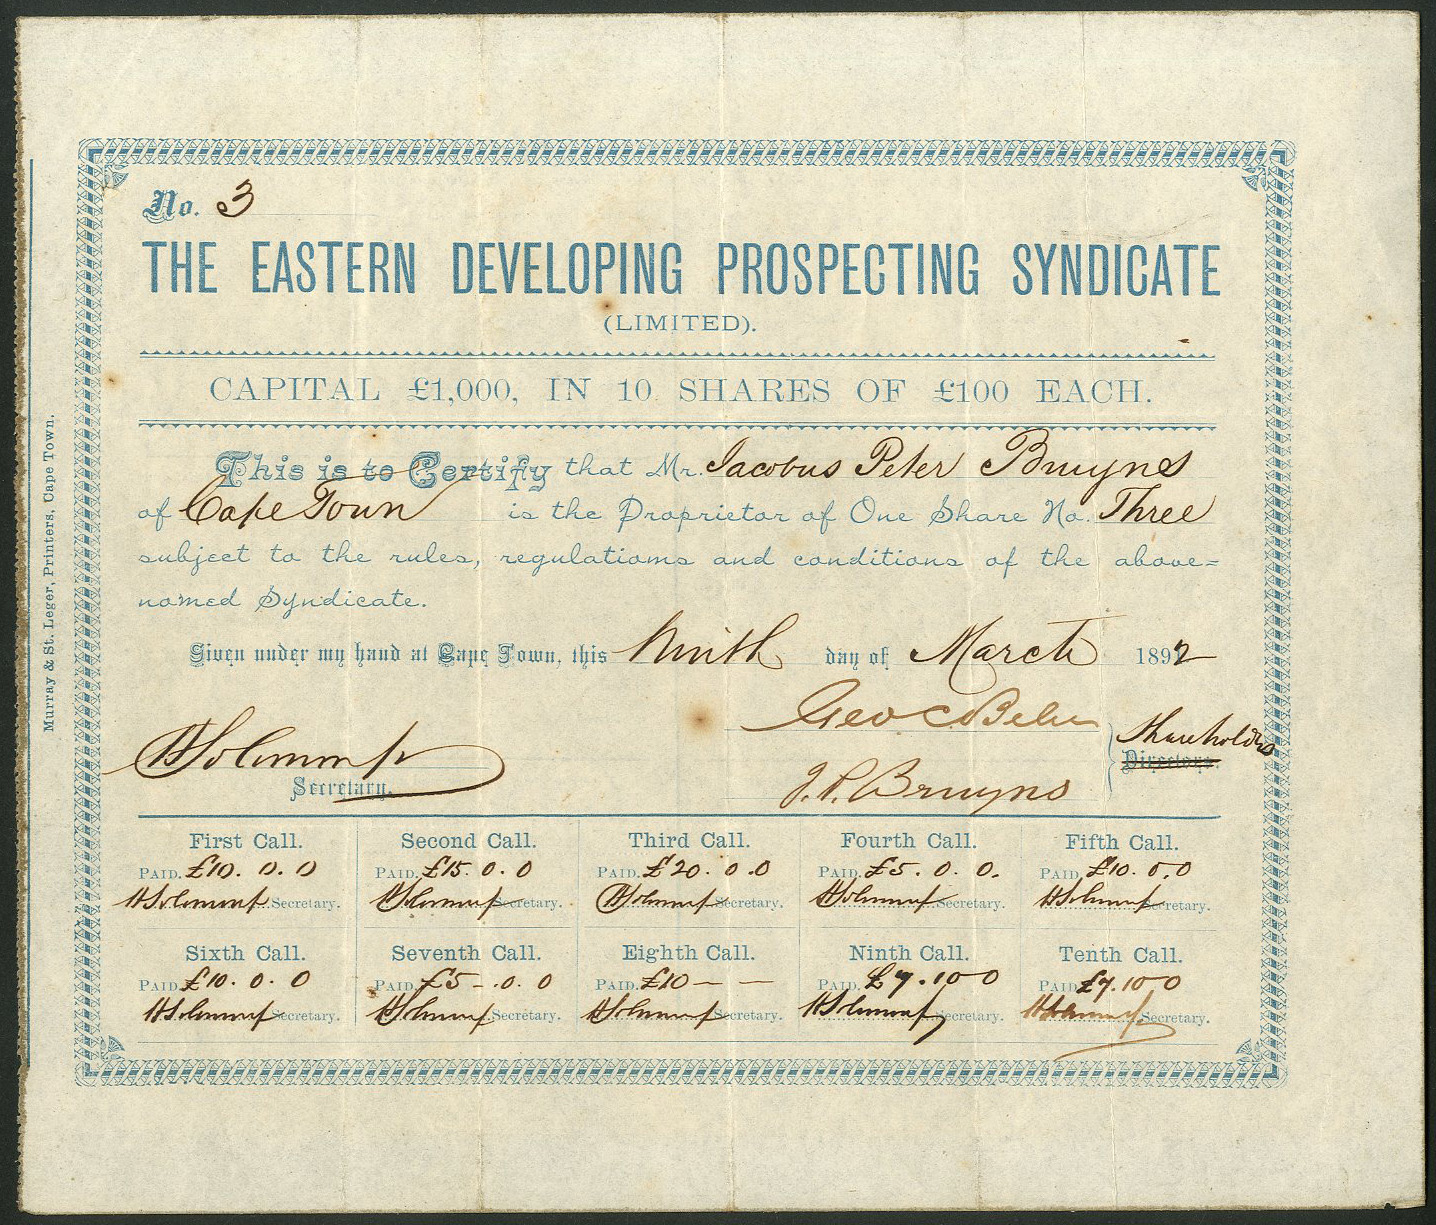 No. 3
THE EASTERN DEVELOPING PROSPECTING SYNDICATE
(LIMITED).
CAPITAL £1,000, IN 10 SHARES OF £100 EACH.
This is to Certify that Mr. Jacobus Peter Bruyns
of Cape Town is the Proprietor of One Share No. Three
subject to the rules, regulations and conditions of the above=
named Syndicate.
Given under my hand at Cape Town, this Ninth day of March 1892
Geo C
Shareholders
Directors.
Secretary.
J. P. Bruyns
First Call. Second Call. Third Call. Fourth Call. Fifth Call.
PAID. £10. 0. 0 PAID. £15. 0. 0 PAID. £20. 0. 0 PAID. £5. 0. 0. PAID. £10. 0. 0
Secretary. Secretary. Secretary. Secretary. Secretary.
Sixth Call. Seventh Call. Eighth Call. Ninth Call. Tenth Call.
PAID. £10. 0. 0 PAID. £5 -. 0. 0 PAID. £10 — — PAID. £7. 10 0 PAID. £7. 10 0
Secretary. Secretary. Secretary. Secretary. Secretary.
Murray & St. Leger, Printers, Cape Town.